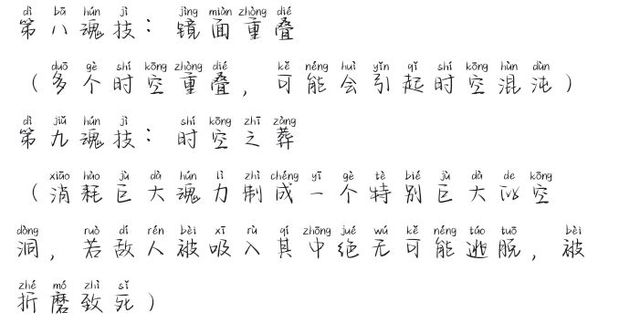 dì bā hún jì jìng miàn zhòng dié
第八魂技：镜面重叠
duō gè shí kōng zhòng dié kě néng huì yǐn qǐ shí kōng hùn dùn
（多个时空重叠，可能会引起时空混沌）
dì jiǔ hún jì shí kōng zhī zàng
第九魂技：时空之葬
xiāo hào jù dà hún lì zhì chéng yī gè tè bié jù dà de kōng
（消耗巨大魂力制成一个特别巨大的空
dòng ruò dí rén bèi xī rù qí zhōng jué wú kě néng táo tuō bèi
洞，若敌人被吸入其中绝无可能逃脱，被
zhé mó zhì sǐ
折磨致死）